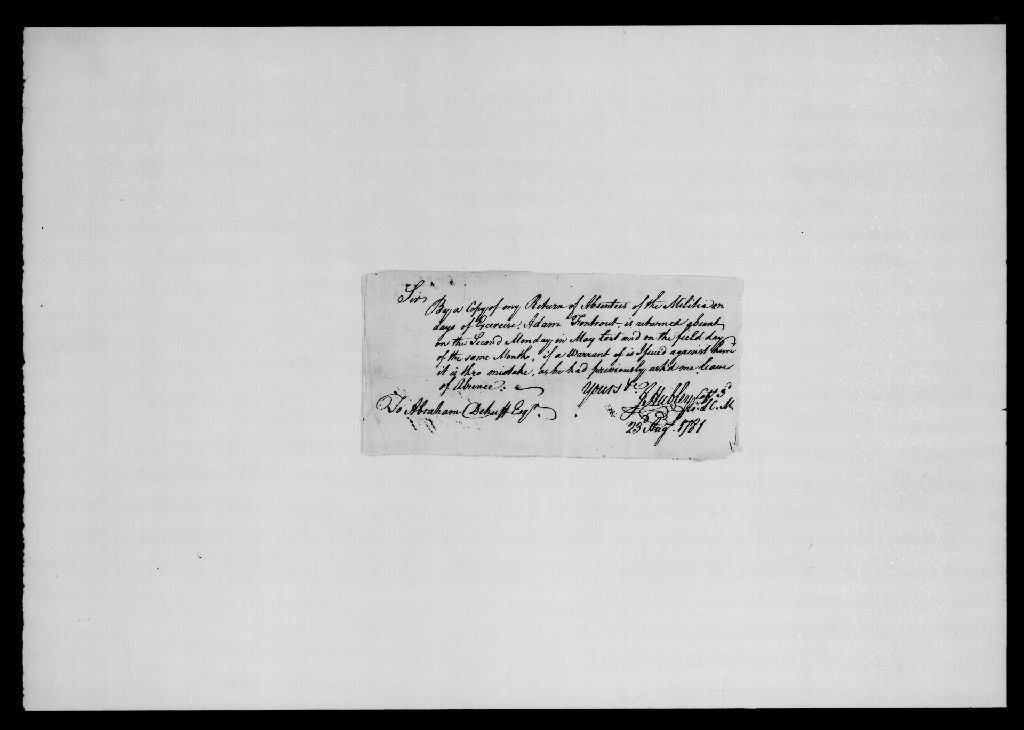 Sir
By a Copy of my Return of Absentees of the Militia on
days of Exercise, Adam Fonbrout is returned absent
on the Second Monday in May last and on the field day
of the same Month, if a Warrant is Issued against him
it is thro mistake, as he had previously ask'd me leave
of Absence.
Yours &c
J. Hubley Capt 3d
To Abraham Dehuff Esqr.
L. C. M.
23 Augt 1781